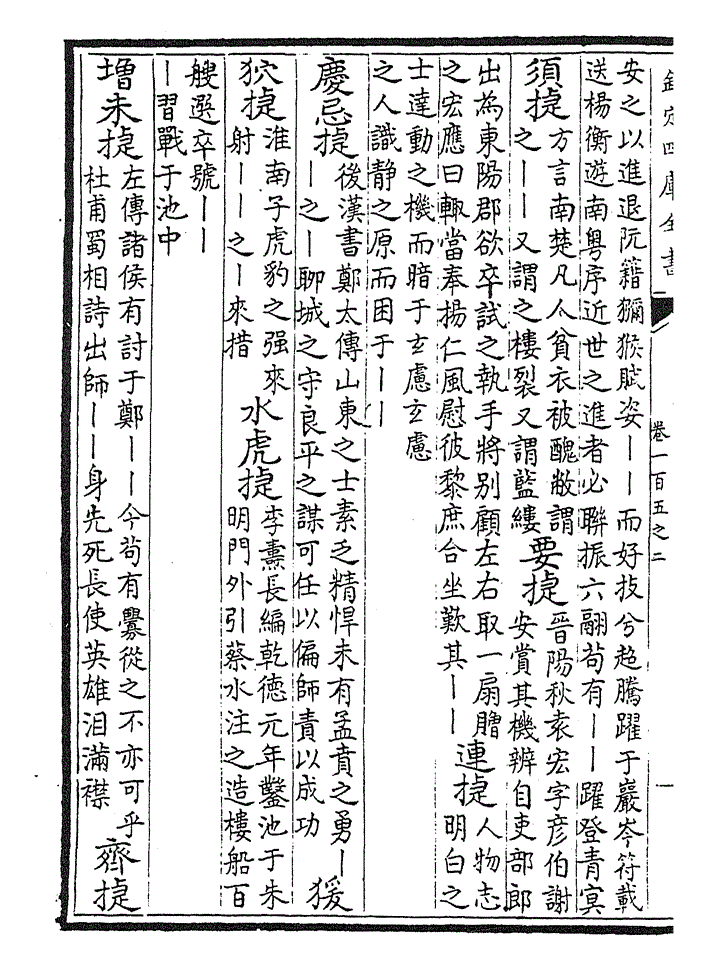 欽定四庫全書 卷一百五之二 一
安之以進退阮籍獮猴賦姿丨丨而好扳兮超騰躍于巖岑符載
送楊衡遊南粵序近世之進者必聯振六翮茍有丨丨躍登青冥
須捷
方言南楚凡人貧衣被醜敝謂
之丨丨又謂之褸裂又謂藍縷
要捷
晉陽秋袁宏字彥伯謝
安賞其機辨自吏部郎
出為東陽郡欲卒試之執手將別顧左右取一扇贈
之宏應曰輒當奉揚仁風慰彼黎庶合坐歎其丨丨
連捷
人物志
明白之
士達動之機而暗于玄慮玄慮
之人識静之原而困于丨丨
慶忌捷
後漢書鄭太傳山東之士素乏精悍未有孟賁之勇丨
丨之丨聊城之守良平之謀可任以偏師責以成功
猨
狖捷
淮南子虎豹之强來
射丨丨之丨來措
水虎捷
李燾長編乾德元年鑿池于朱
明門外引蔡水注之造樓船百
艘選卒號丨丨
丨習戰于池中
増未捷
左傳諸侯有討于鄭丨丨今茍有釁從之不亦可乎
杜甫蜀相詩出師丨丨身先死長使英雄泪滿襟
齊捷